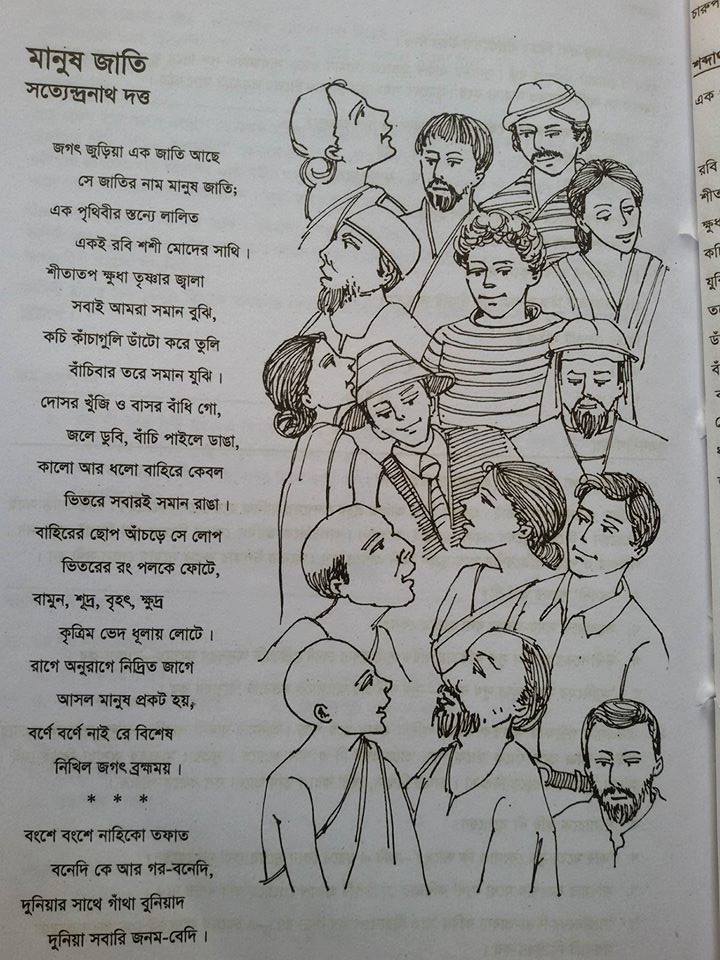 মানুষ জাতি
সত্যেন্দ্রনাথ দত্ত
জগৎ জুড়িয়া এক জাতি আছে
সে জাতির নাম মানুষ জাতি;
এক পৃথিবীর স্তন্যে লালিত
একই রবি শশী মোদের সাথি।
শীতাতপ ক্ষুধা তৃষ্ণার জ্বালা
সবাই আমরা সমান বুঝি,
কচি কাঁচাগুলি ডাঁটো করে তুলি
বাঁচিবার তরে সমান যুঝি।
দোসর খুঁজি ও বাসর বাঁধি গো,
জলে ডুবি, বাঁচি পাইলে ডাঙা,
কালো আর ধলো বাহিরে কেবল
ভিতরে সবারই সমান রাঙা।
বাহিরের ছোপ আঁচড়ে সে লোপ
ভিতরের রং পলকে ফোটে,
বামুন, শূদ্র, বৃহৎ, ক্ষুদ্র
কৃত্রিম ভেদ ধূলায় লোটে।
রাগে অনুরাগে নিদ্রিত জাগে
আসল মানুষ প্রকট হয়,
বর্ণে বর্ণে নাই রে বিশেষ
নিখিল জগৎ ব্রহ্মময়।
* * *
বংশে বংশে নাহিকো তফাত
বনেদি কে আর গর-বনেদি,
দুনিয়ার সাথে গাঁথা বুনিয়াদ
দুনিয়া সবারি জনম-বেদি।
এক
রবি